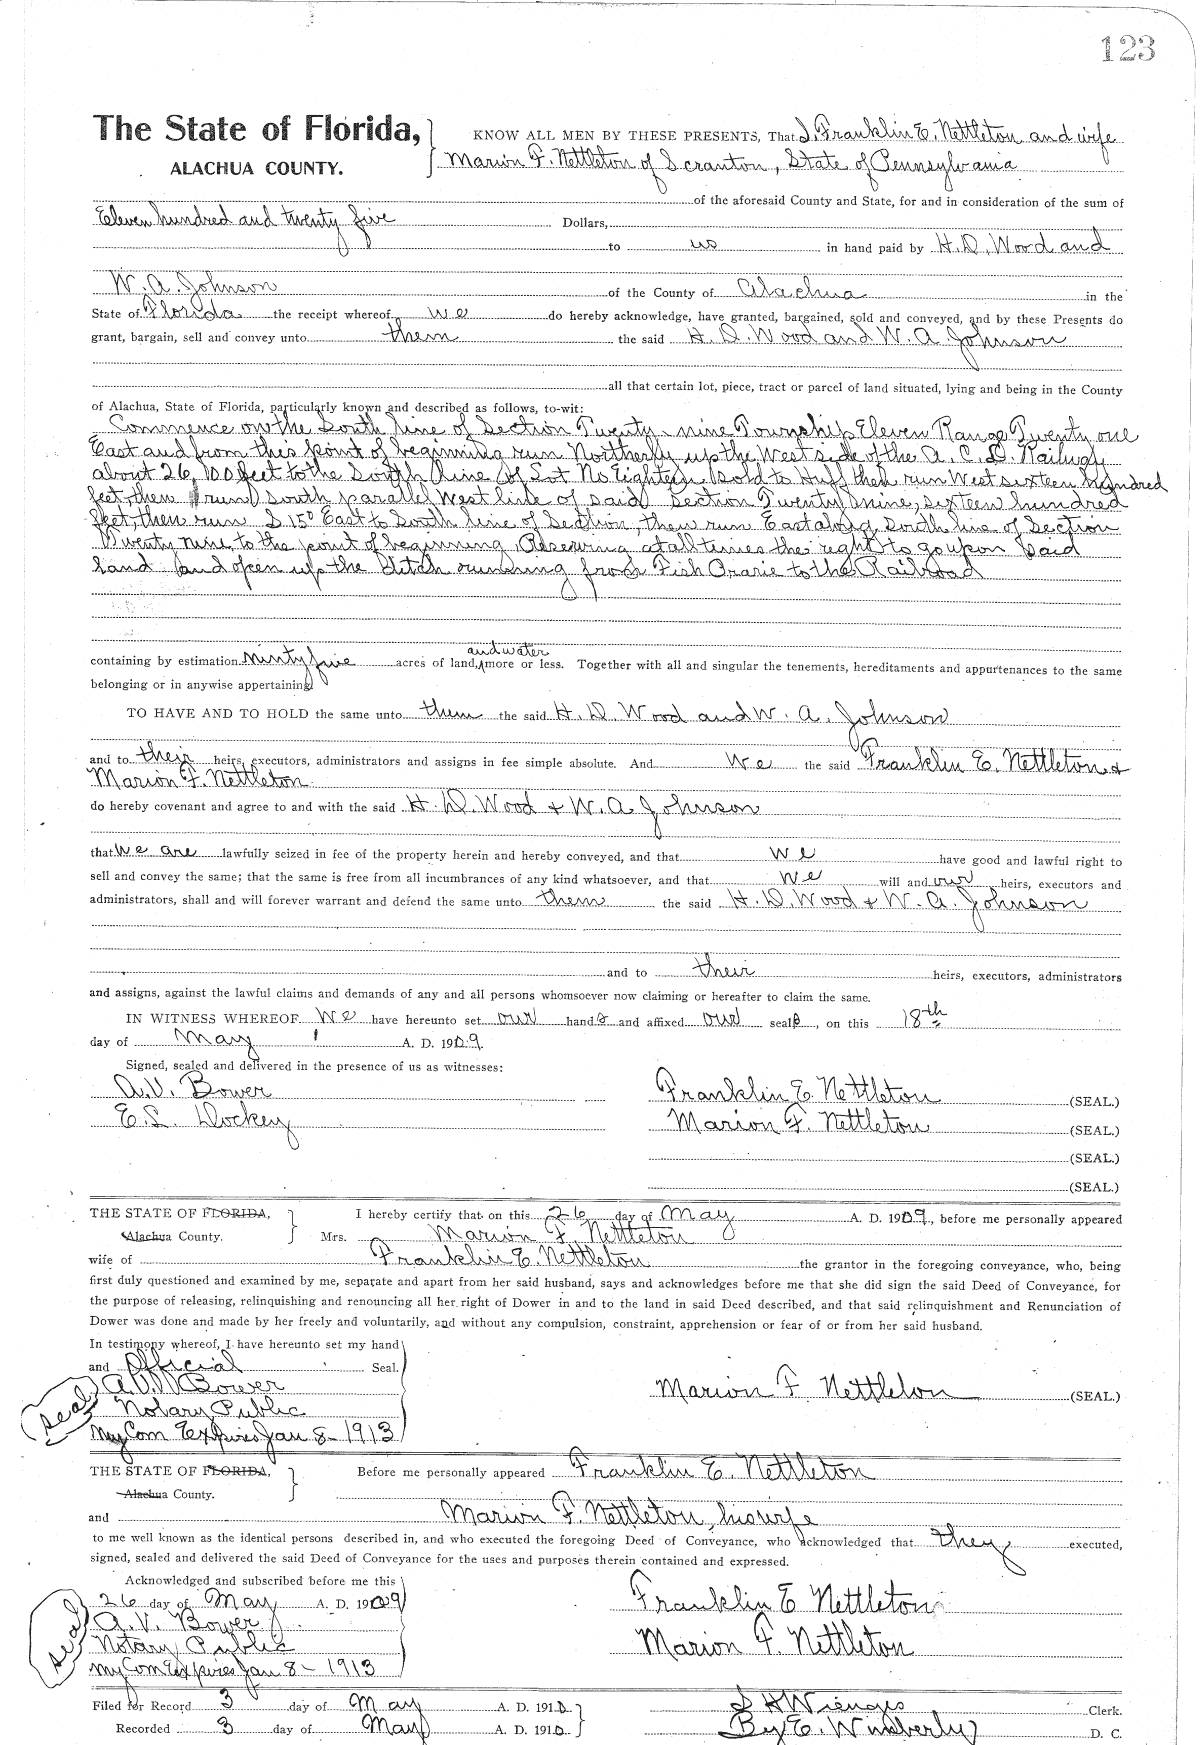 123
The State of Florida, KNOW ALL MEN BY THESE PRESENTS, That I, Franklin E. Nettleton and wife
ALACHUA COUNTY. Marion F. Nettleton of Scranton, State of Pennsylvania
of the aforesaid County and State, for and in consideration of the sum of
Eleven hundred and twenty five Dollars,
to us in hand paid by H. D. Wood and
W. A. Johnson of the County of Alachua in the
State of Florida the receipt whereof we do hereby acknowledge, have granted, bargained, sold and conveyed, and by these Presents do
grant, bargain, sell and convey unto them the said H. D. Wood and W. A. Johnson
all that certain lot, piece, tract or parcel of land situated, lying and being in the County
of Alachua, State of Florida, particularly known and described as follows, to-wit:
Commence on the South line of Section Twenty nine Township Eleven Range Twenty one
East and from this point of beginning run Northerly up the West side of the A. C. L. Railway
about 26,100 feet to the South line of Lot No Eighteen sold to Huff then run West sixteen hundred
feet, then run South parallel West line of said Section Twenty nine, sixteen hundred
feet, then run S 15° East to South line of Section, then run East along South line of Section
Twenty nine, to the point of beginning, Reserving at all times the right to go upon said
land and open up the Ditch running from Fish Prarie to the Railroad
containing by estimation ninty five acres of land, and water more or less. Together with all and singular the tenements, hereditaments and appurtenances to the same
belonging or in anywise appertaining.
TO HAVE AND TO HOLD the same unto them the said H. D. Wood and W. A. Johnson
and to their heirs, executors, administrators and assigns in fee simple absolute. And We the said Franklin E. Nettleton &
Marion F. Nettleton
do hereby covenant and agree to and with the said H. D. Wood + W. A. Johnson
that we are lawfully seized in fee of the property herein and hereby conveyed, and that we have good and lawful right to
sell and convey the same; that the same is free from all incumbrances of any kind whatsoever, and that we will and our heirs, executors and
administrators, shall and will forever warrant and defend the same unto them the said H. D. Wood + W. A. Johnson
and to their heirs, executors, administrators
and assigns, against the lawful claims and demands of any and all persons whomsoever now claiming or hereafter to claim the same.
IN WITNESS WHEREOF We have hereunto set our hands and affixed our seals, on this 18th
day of May A. D. 1909.
Signed, sealed and delivered in the presence of us as witnesses:
A. V. Bower Franklin E. Nettleton (SEAL.)
E. L. Dockey Marion F. Nettleton (SEAL.)
(SEAL.)
(SEAL.)
THE STATE OF FLORIDA, I hereby certify that on this 26 day of May A. D. 1909, before me personally appeared
Alachua County. Mrs. Marion F. Nettleton
wife of Franklin E. Nettleton the grantor in the foregoing conveyance, who, being
first duly questioned and examined by me, separate and apart from her said husband, says and acknowledges before me that she did sign the said Deed of Conveyance, for
the purpose of releasing, relinquishing and renouncing all her right of Dower in and to the land in said Deed described, and that said relinquishment and Renunciation of
Dower was done and made by her freely and voluntarily, and without any compulsion, constraint, apprehension or fear of or from her said husband.
In testimony whereof, I have hereunto set my hand
and Official Seal.
(seal) A. V. Bower Marion F. Nettleton (SEAL.)
Notary Public
My Com Expires Jan 8 - 1913
THE STATE OF FLORIDA, Before me personally appeared Franklin E. Nettleton
Alachua County.
and Marion F. Nettleton, his wife
to me well known as the identical persons described in, and who executed the foregoing Deed of Conveyance, who acknowledged that they executed,
signed, sealed and delivered the said Deed of Conveyance for the uses and purposes therein contained and expressed.
Acknowledged and subscribed before me this
26 day of May A. D. 1909 Franklin E Nettleton
(seal) A. V. Bower
Notary Public Marion F. Nettleton
My Com Expires Jan 8 - 1913
Filed for Record 3 day of May A. D. 1910 S H Wienges Clerk.
Recorded 3 day of May A. D. 1910. By E. Wimberly D. C.